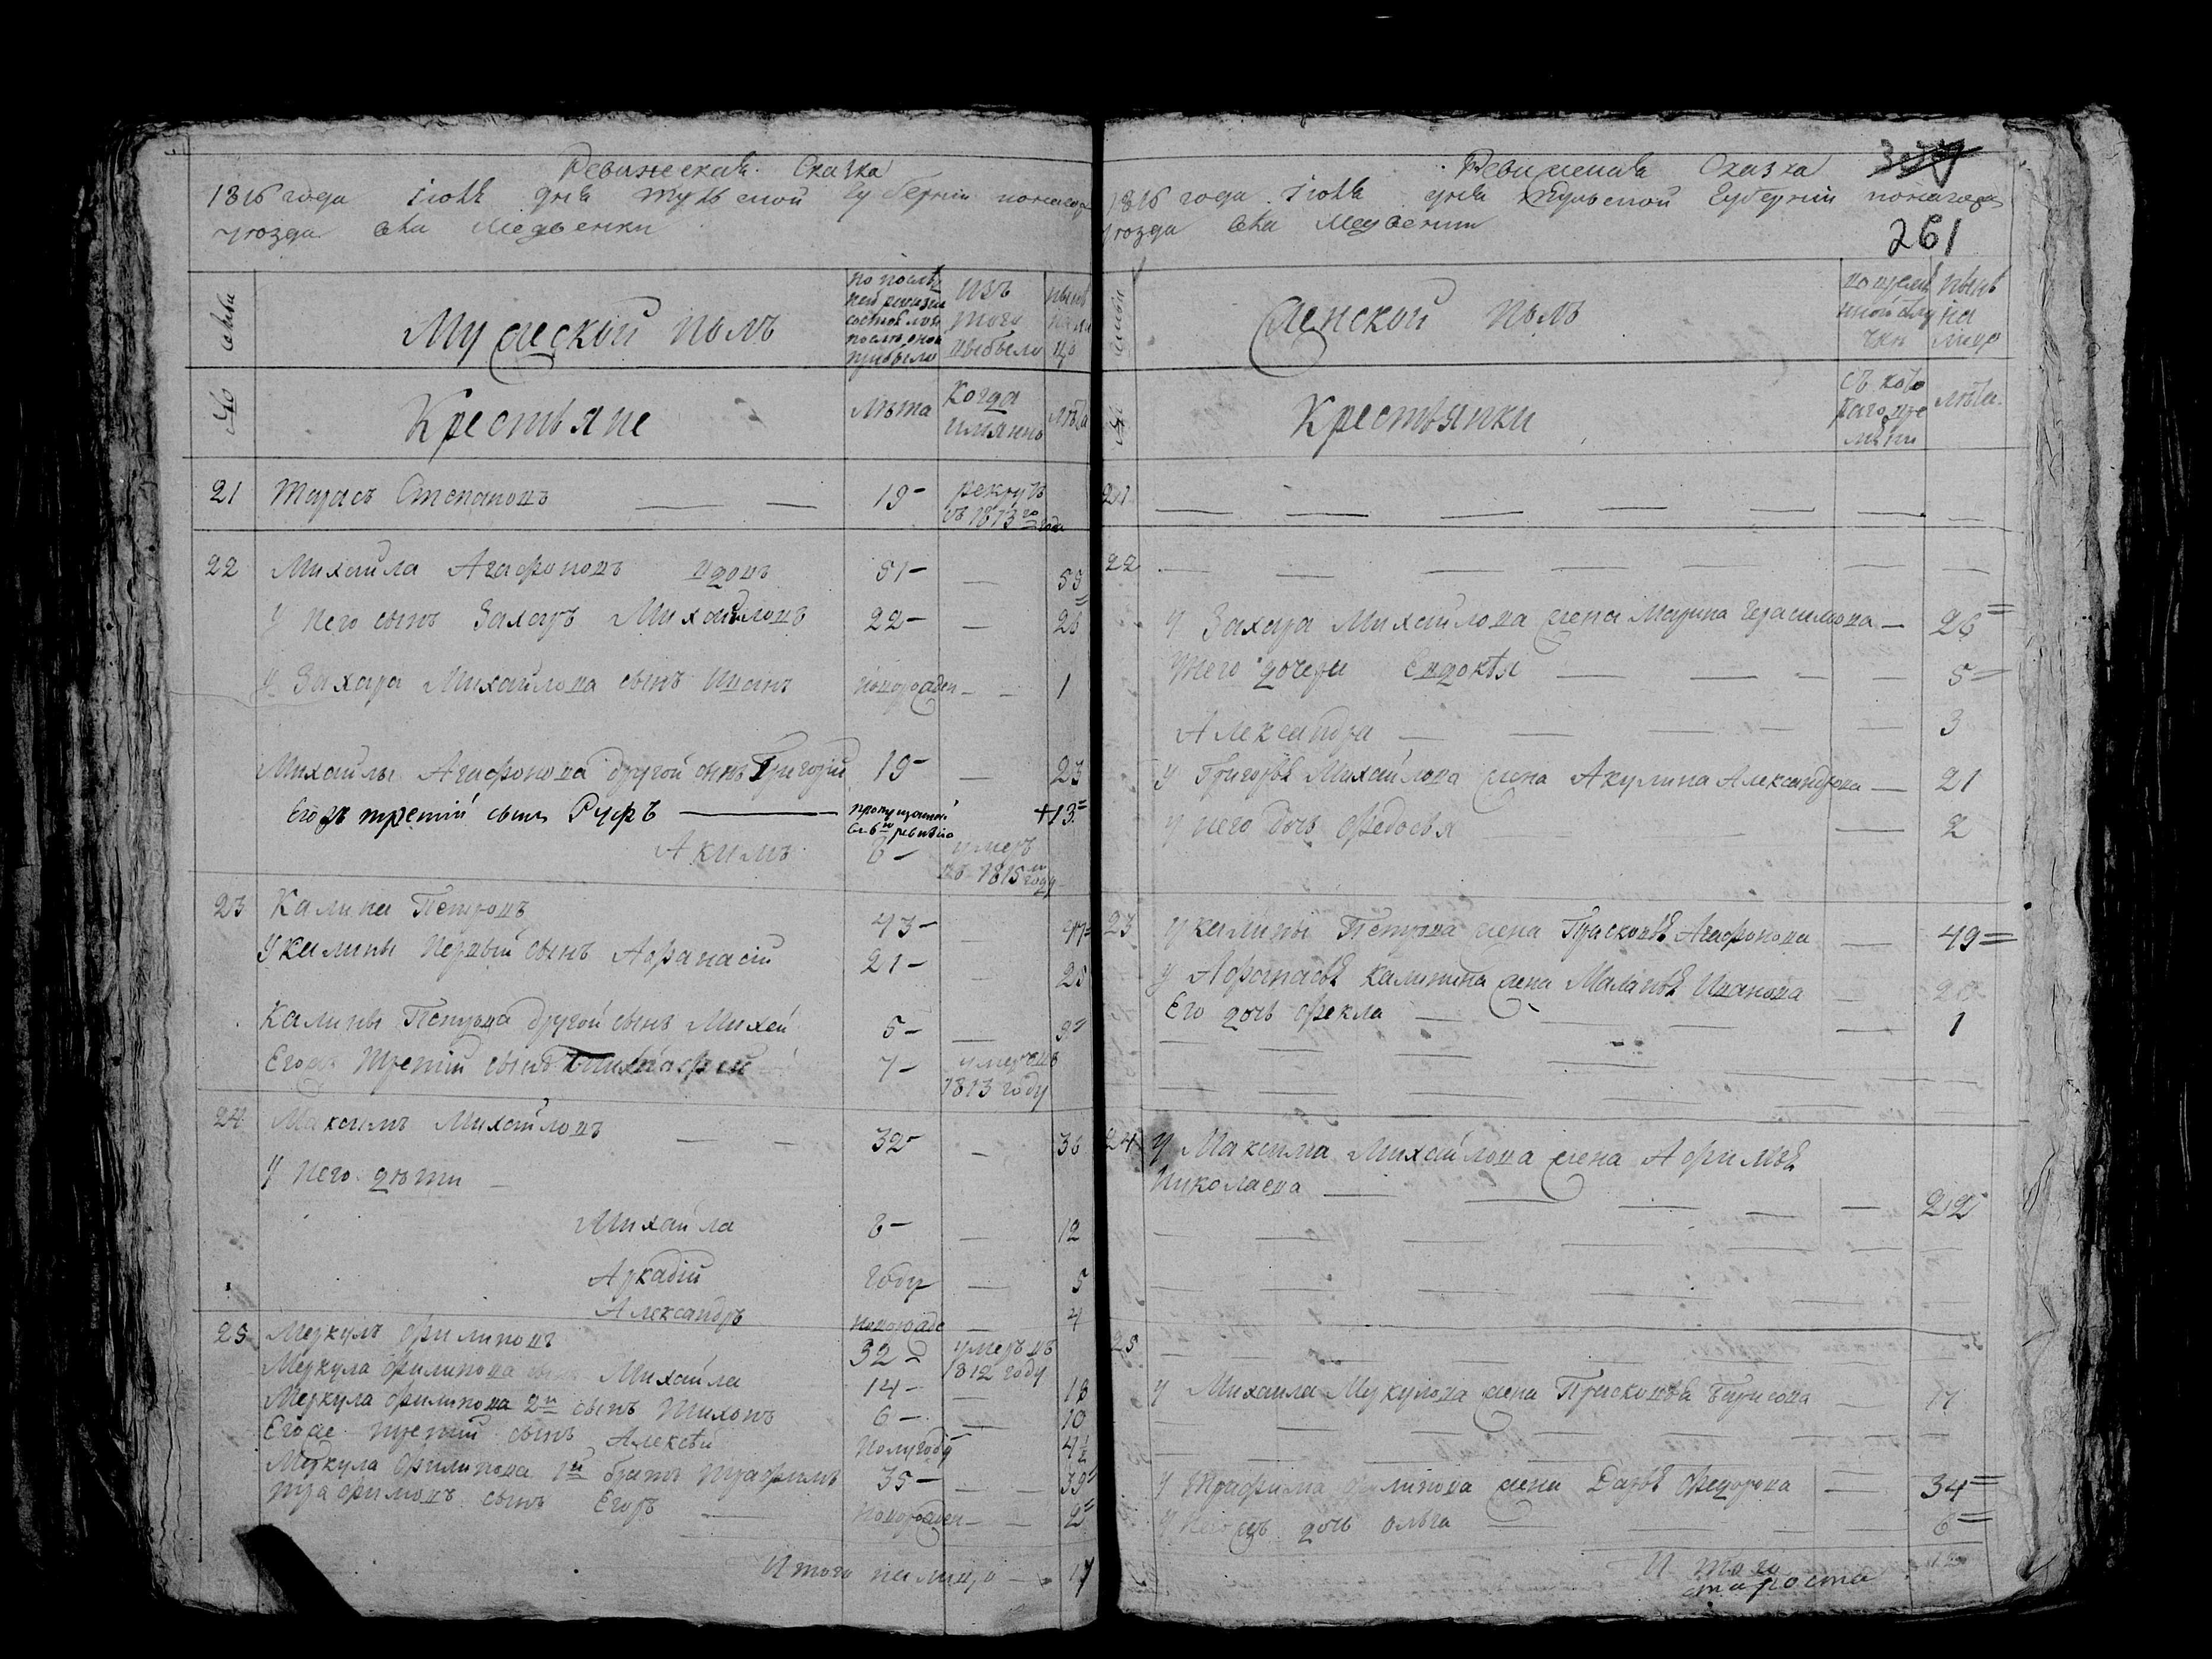 Ревижеская Сказка
1816 года іюля дня Тульской Губерніи
уезда села Медвенки
семьи
Мужеской полъ
по послѣд
ней ревизіи
состояло и
послѣ оной
прибыло
изъ
того
выбыло
нынѣ
на ли
цо
№
Крестьяне
лѣта
Когда
имянно
лѣта
21 Тарасъ Степановъ — — 19 рекрутъ
въ 1813го года
22 Михайла Агафоновъ вдовъ 51 — 55
У него сынъ Захаръ Михайловъ 22 — 26
У Захара Михайлова сынъ Иванъ новорожден — — 1
Михайлы Агафонова другой сынъ Григорій 19 — 23
Егожъ третій сынъ Руфъ — пропущенной +13
Акимъ 8 умеръ
въ 1815м году
23 Калина Петровъ 43 — 47
У Калины первый сынъ Афанасій 21 — 25
Калины Петрова другой сынъ Михей 5 — 9
Егожъ третій сынъ 7 умеръ въ
1813 году
24 Максимъ Михайловъ — — 32 — 36
У него дѣти —
Михайла 8 — 12
Аркадій году — 5
Александръ новорожде — 4
25 Меркулъ Филиповъ 32 умеръ въ
1812 году
Меркула Филипова Михайла 14 — 18
Меркула Филипова 2й сынъ Тихонъ 6 — 10
Егоже третій сынъ Алексѣй полугоду — 4½
Меркула Филипова 1й братъ Трафимъ 35 — — 39
Трафимовъ сынъ Егоръ — новорожден — — 2
Итого на лицо — 17
Ревижская Сказка
261
1816 года іюля дня Тульской Губерніи
уезда села Медвенки
семьи
Женской полъ
во времян
ной отлу
чкѣ
нынѣ
на
лицо
№
Крестьянки
съ кото
раго вре
мѣни
лѣта
21 — — — — — — —
22 — — — — — — —
У Захара Михайлова жена Марина Герасимова — 26
У него дочери Евдокѣя — — — — 5
Александра — — — — — 3
У Григорья Михайлова жена Акулина Александрова — 21
У него дочь Федосья — — 2
23 У Калины Петрова жена Прасковья Агафонова — 49
У Афанасья Калинина жена Маланья Иванова — 20
Его дочь Фекла — — — — 1
24 У Максима Михайлова жена Афимья
Николаева — — — — —
25 — — — — — —
У Михаила Мукулова жена Прасковья Борисова — 17
У Трафима Филипова жена Дарья Федорова — 34
У негожъ дочь Ольга — — — — 6
Итого 12
староста